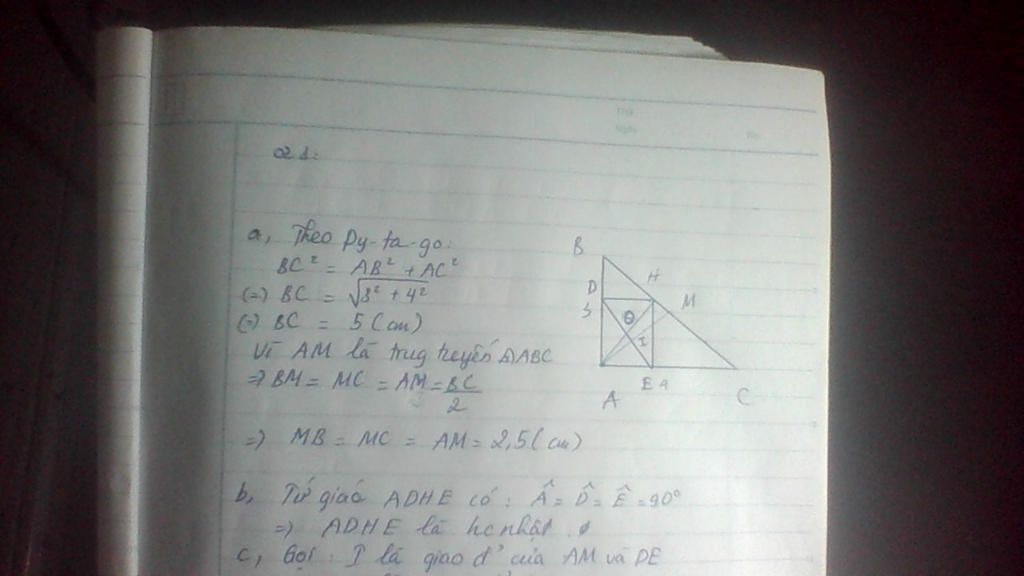 a, Theo Py-ta-go:
BC² = AB² + AC²
(=) BC = √3² + 4²
(=) BC = 5 (cm)
Vì AM là trug tuyến ΔABC
=> BM = MC = AM = BC/2
=> MB = MC = AM = 2,5 (cm)
b, Tứ giác ADHE có : Â = D̂ = Ê = 90°
=> ADHE là hc nhật.
c, Gọi : I là giao đ' của AM và DE
B
D
H
3
M
O
I
E 4
A
C